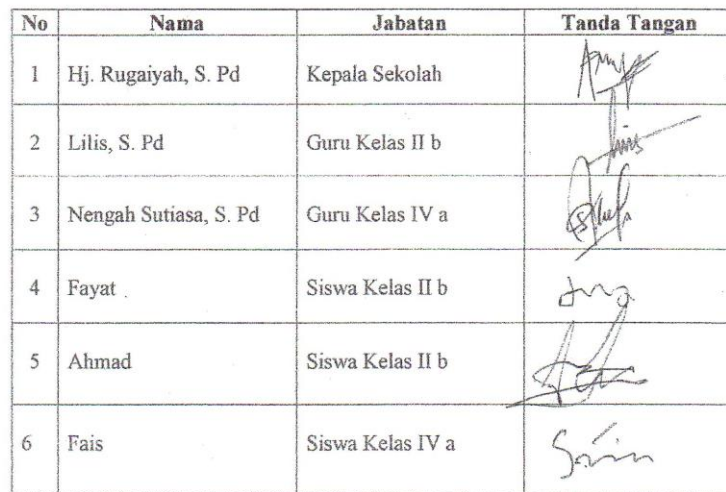 No Nama Jabatan Tanda Tangan
1 Hj. Rugaiyah, S. Pd Kepala Sekolah
2 Lilis, S. Pd Guru Kelas II b
3 Nengah Sutiasa, S. Pd Guru Kelas IV a
4 Fayat Siswa Kelas II b
5 Ahmad Siswa Kelas II b
6 Fais Siswa Kelas IV a